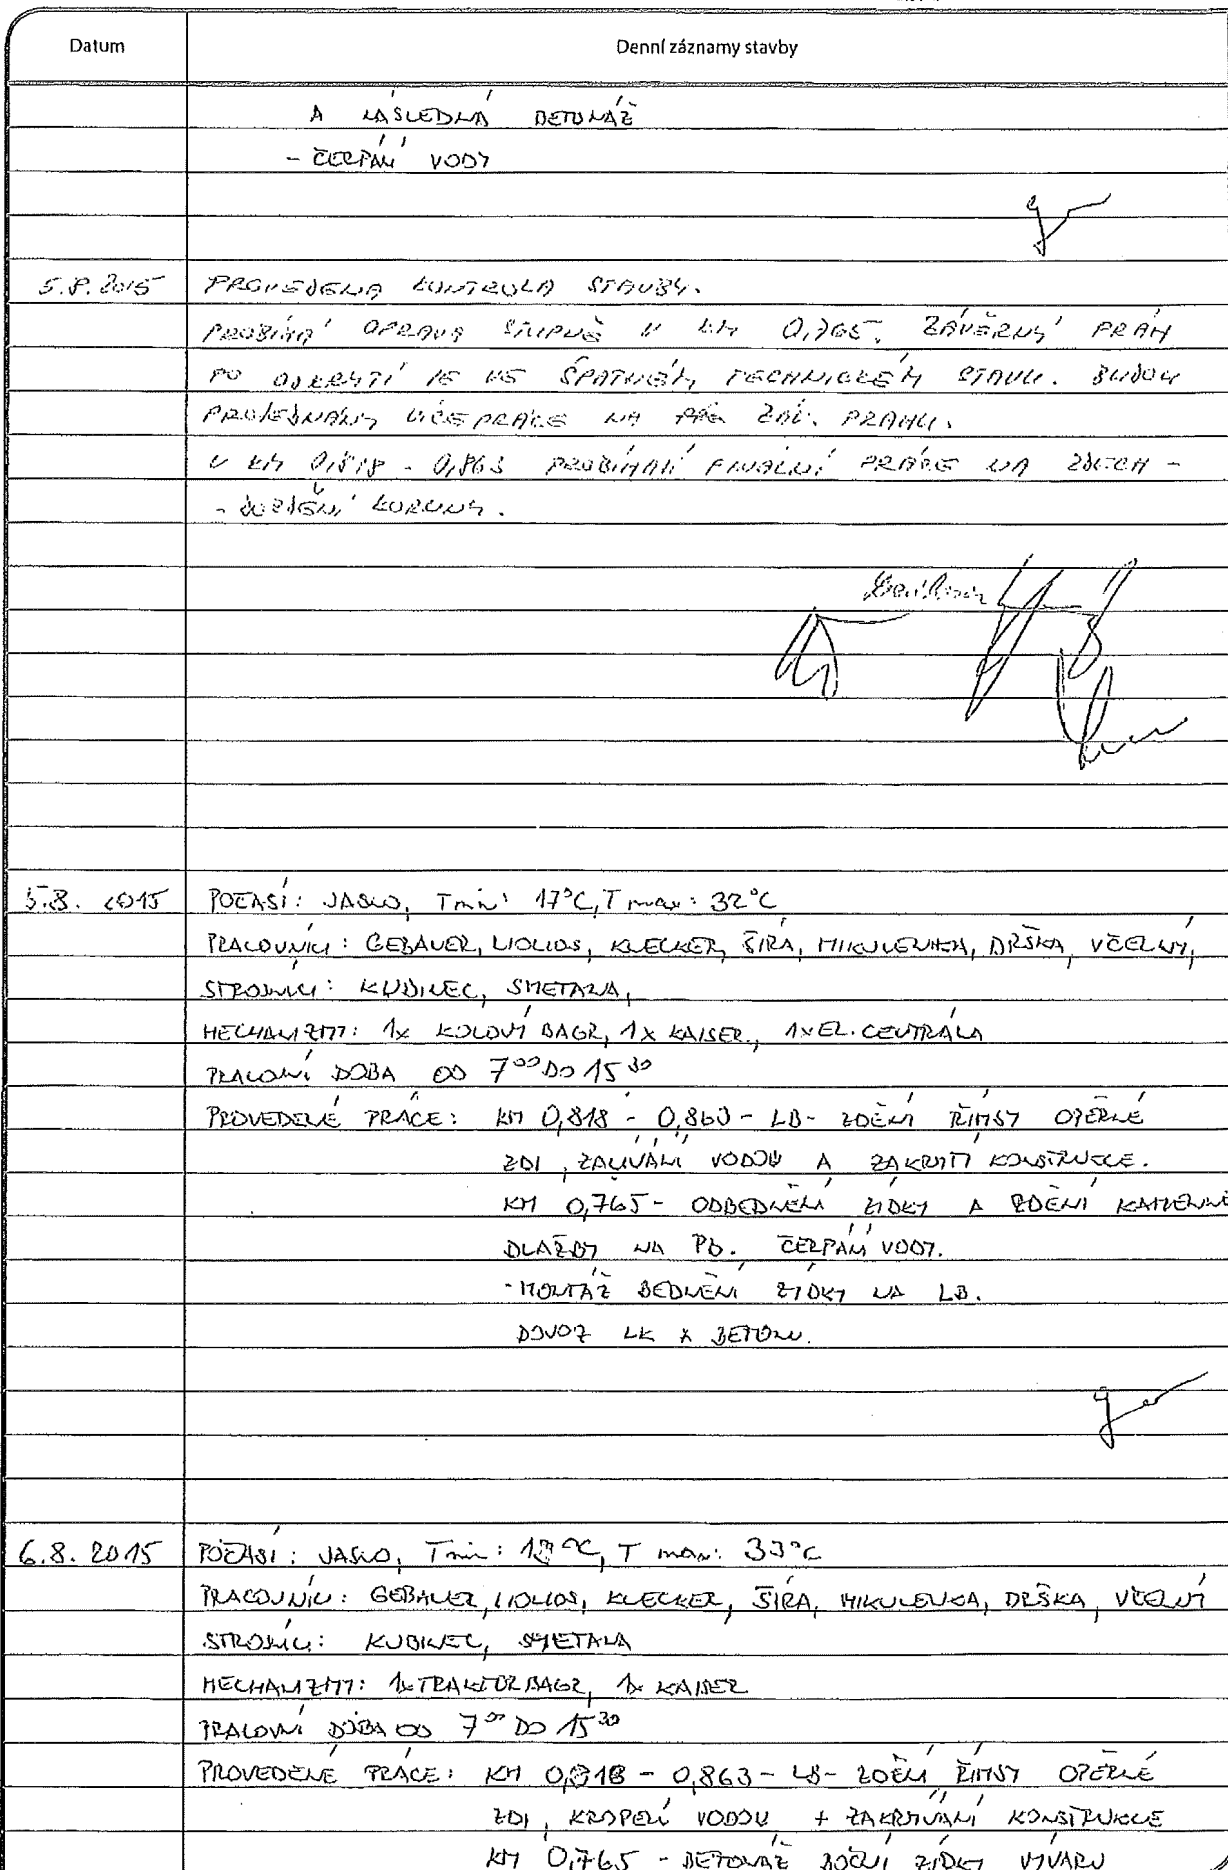 Datum
Denní záznamy stavby
A NÁSLEDNÁ BETONÁŽ
- ČERPÁNÍ VODY
5.8.2015 PROVEDENA KONTROLA STAVBY.
PROBÍHÁ OPRAVA STUPNĚ V KM 0,765. ZÁVĚRNÝ PRÁH
PO ODKRYTÍ JE VE ŠPATNÉM TECHNICKÉM STAVU. BUDOU
PROJEDNÁNY VÍCEPRÁCE NA ZÁV. PRAHU.
V KM 0,818 - 0,863 PROBÍHAJÍ FINÁLNÍ PRÁCE NA ZDECH -
- DOZDĚNÍ KORUNY.
5.8. 2015 POČASÍ: JASNO, Tmin: 17°C, T max: 32°C
PRACOVNÍCI: GEBAUER, LIOLIOS, KLECKER, ŠÍRA, MIKULENKA, DRŠKA, VČELNÝ,
STROJNÍCI: KUBINEC, SMETANA,
MECHANIZMY: 1x KOLOVÝ BAGR, 1x KAISER, 1x EL. CENTRÁLA
PRACOVNÍ DOBA OD 7 00 DO 15 30
PROVEDENÉ PRÁCE: KM 0,818 - 0,863 - LB - ZDĚNÍ ŘÍMSY OPĚRNÉ
ZDI, ZALÍVÁNÍ VODOU A ZAKRYTÍ KONSTRUKCE.
KM 0,765 - ODBEDNĚNÍ ZÍDKY A ZDĚNÍ KAMENNÉ
DLAŽBY NA Pb. ČERPÁNÍ VODY.
- MONTÁŽ BEDNĚNÍ ZÍDKY NA LB.
DOVOZ LK A BETONU.
6.8. 2015 POČASÍ: JASNO, Tmin: 18°C, T max: 33°C
PRACOVNÍCI: GEBAUER, LIOLIOS, KLECKER, ŠÍRA, MIKULENKA, DRŠKA, VČELNÝ
STROJNÍCI: KUBINEC, SMETANA
MECHANIZMY: 1x TRAKTORBAGR, 1x KAISER
PRACOVNÍ DOBA OD 7 00 DO 15 30
PROVEDENÉ PRÁCE: KM 0,818 - 0,863 - LB - ZDĚNÍ ŘÍMSY OPĚRNÉ
ZDI, KROPENÍ VODOU + ZAKRÝVÁNÍ KONSTRUKCE
KM 0,765 - BETONÁŽ BOČNÍ ZÍDKY VÝVARU